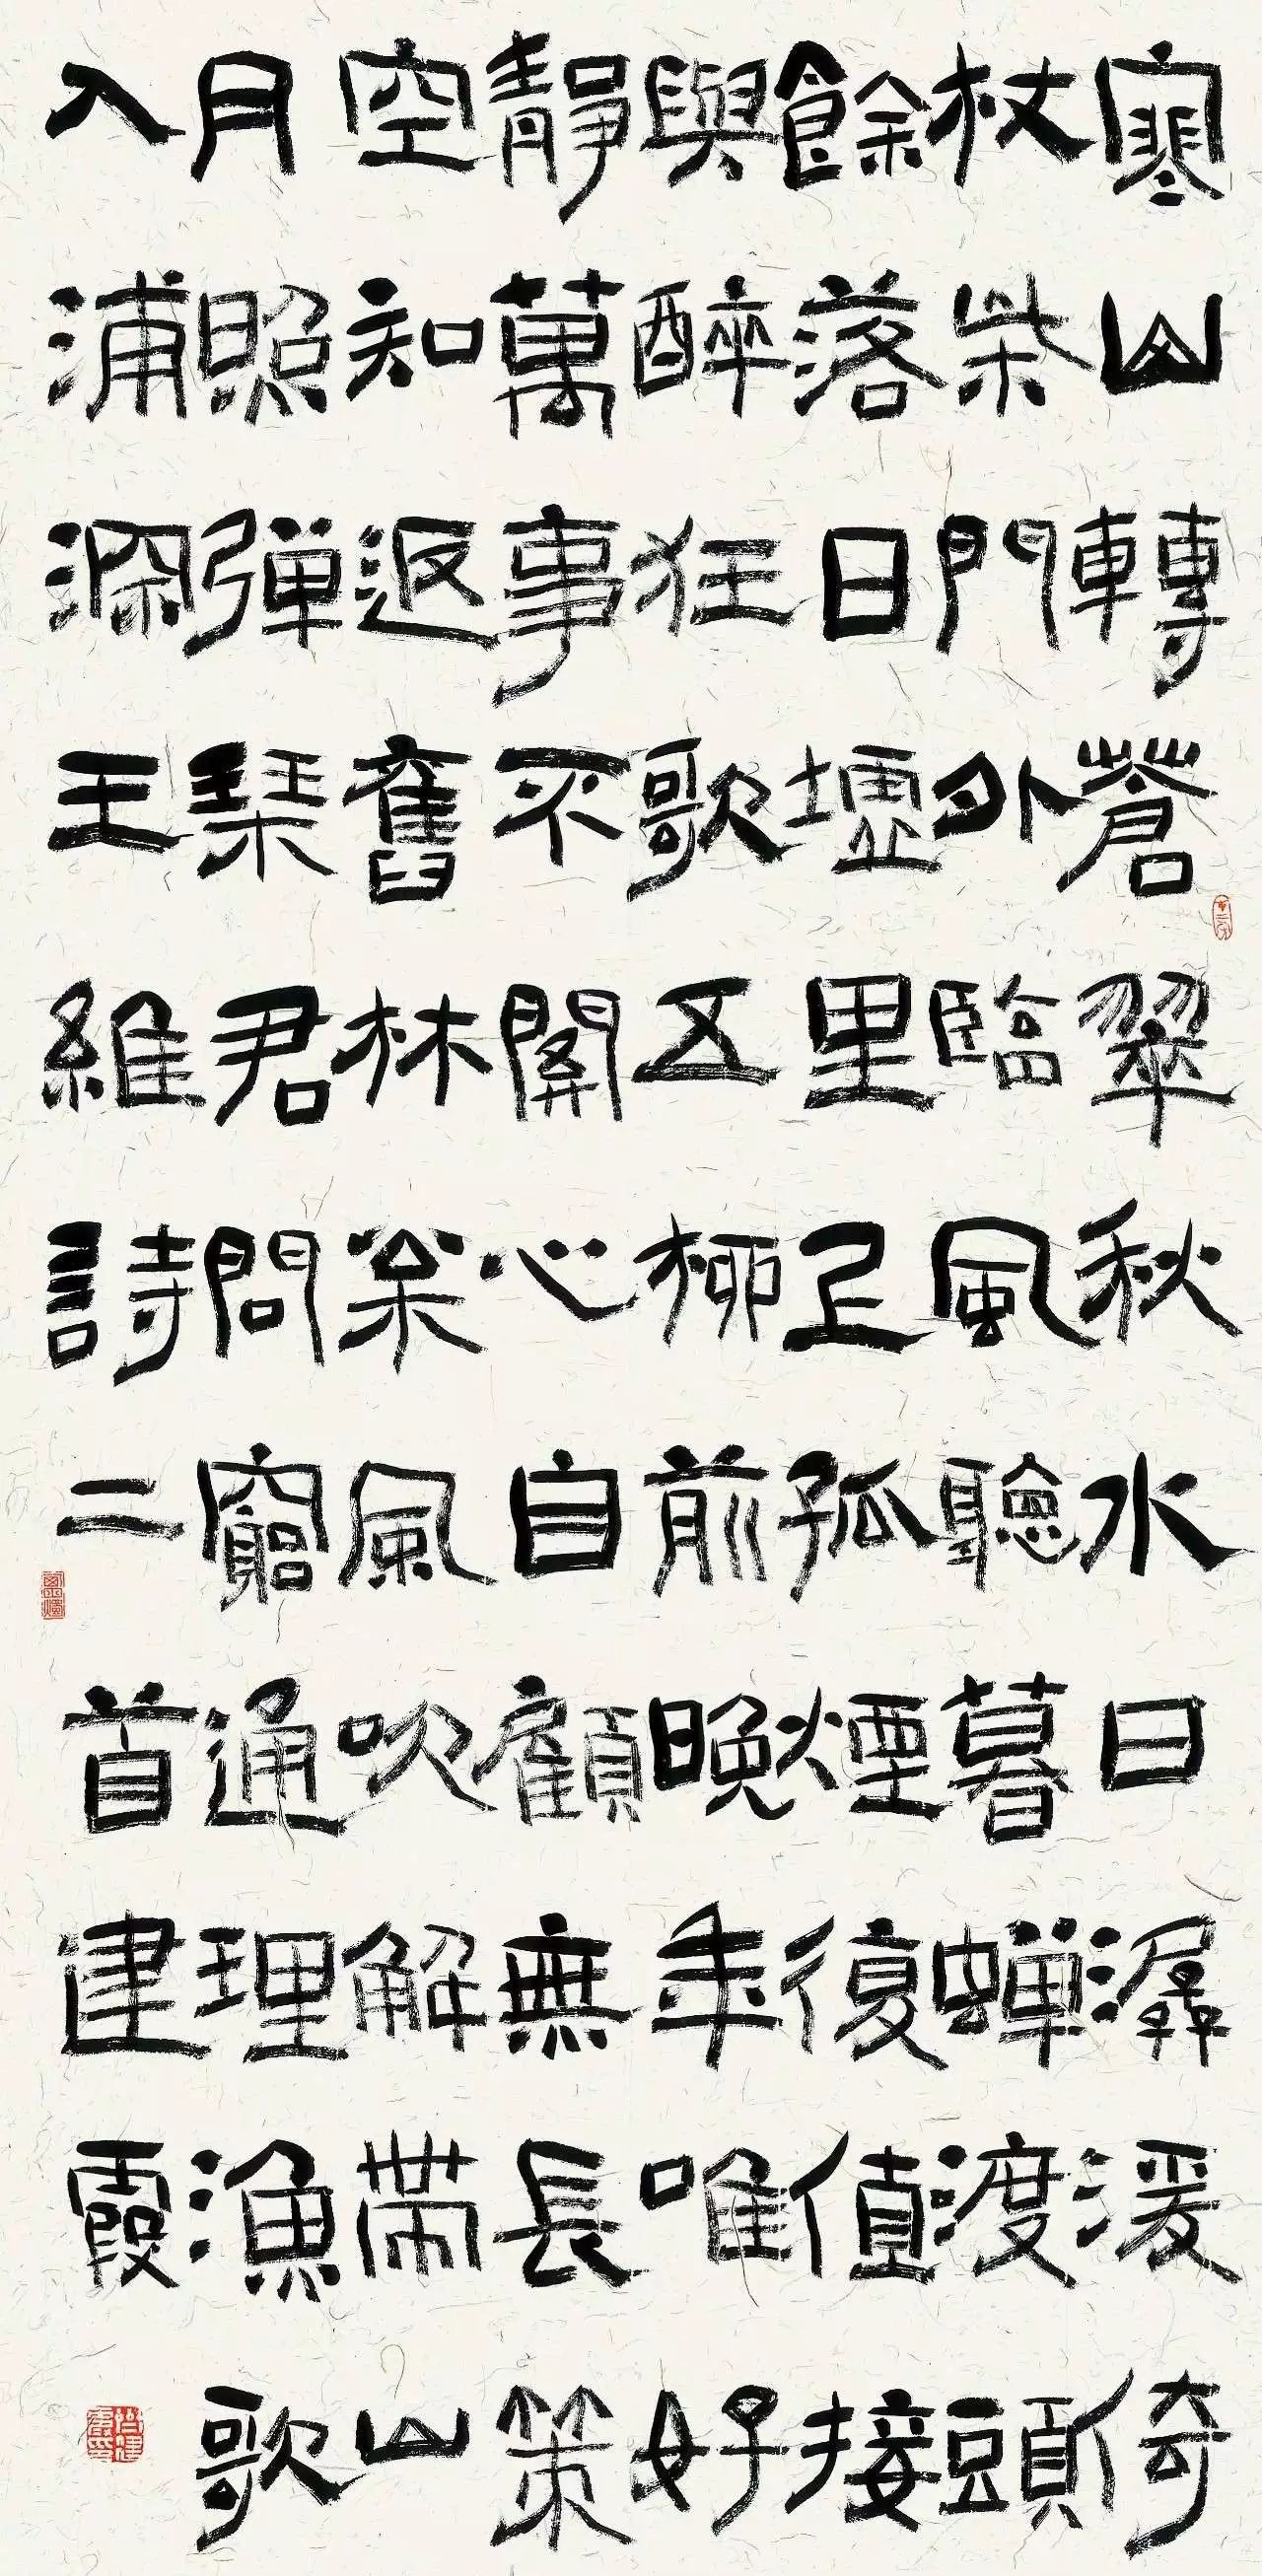 寒山轉蒼翠秋水日潺湲倚
杖柴門外臨風聽暮蝉渡頭
餘落日墟里上孤煙復值接
與醉狂歌五柳前晚年唯好
靜萬事不關心自顧無長策
空知返舊林枀風吹解帶山
月照弹琴君問窮通理漁歌
入浦深王維詩二首建霞